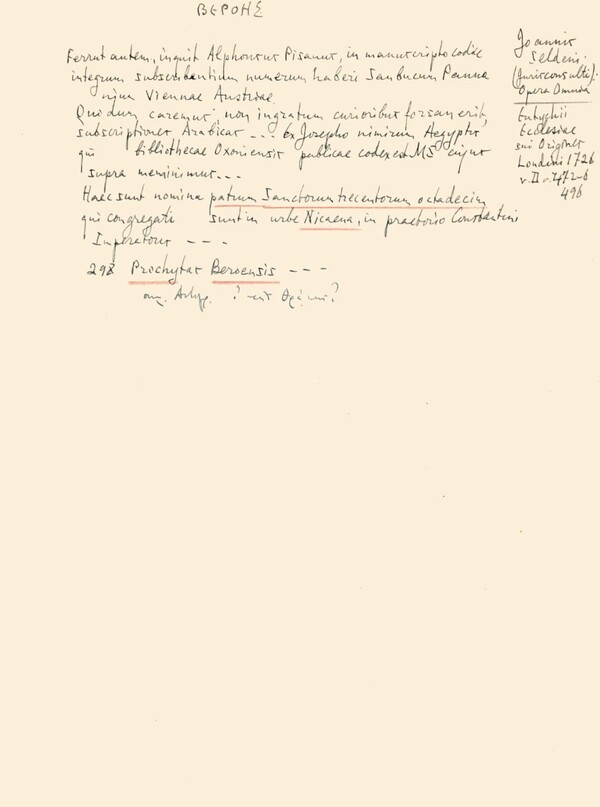 ΒΕΡΟΗΣ
Ferrut autem, inquit Alphonsus Pisanus, in manuscripto codice
integrum subscribentium numerum haberi Sambucum Panno
nium Viennae Austriae.
Quo dum caremus, non ingratum curioribus forsan erit,
subscriptiones Arabicas --- ex Josepho nimirum Aegyptio
qui bibliothecae Oxoniensis publicae codex est MS cujus
supra meminimus---
Haec sunt nomina patrum Sanctorum trecentorum octadecim
qui congregati sunt in urbe Nicaena, in praetorio Constantini
Imperatoris ---
298 Prochytas Beroensis ---
Joannis
Seldeni
(Jurisconsulti)
Opera Omnia
Eutychii
Ecclesiae
sui Origines
Londini 1726
v. II c. 472-6
496